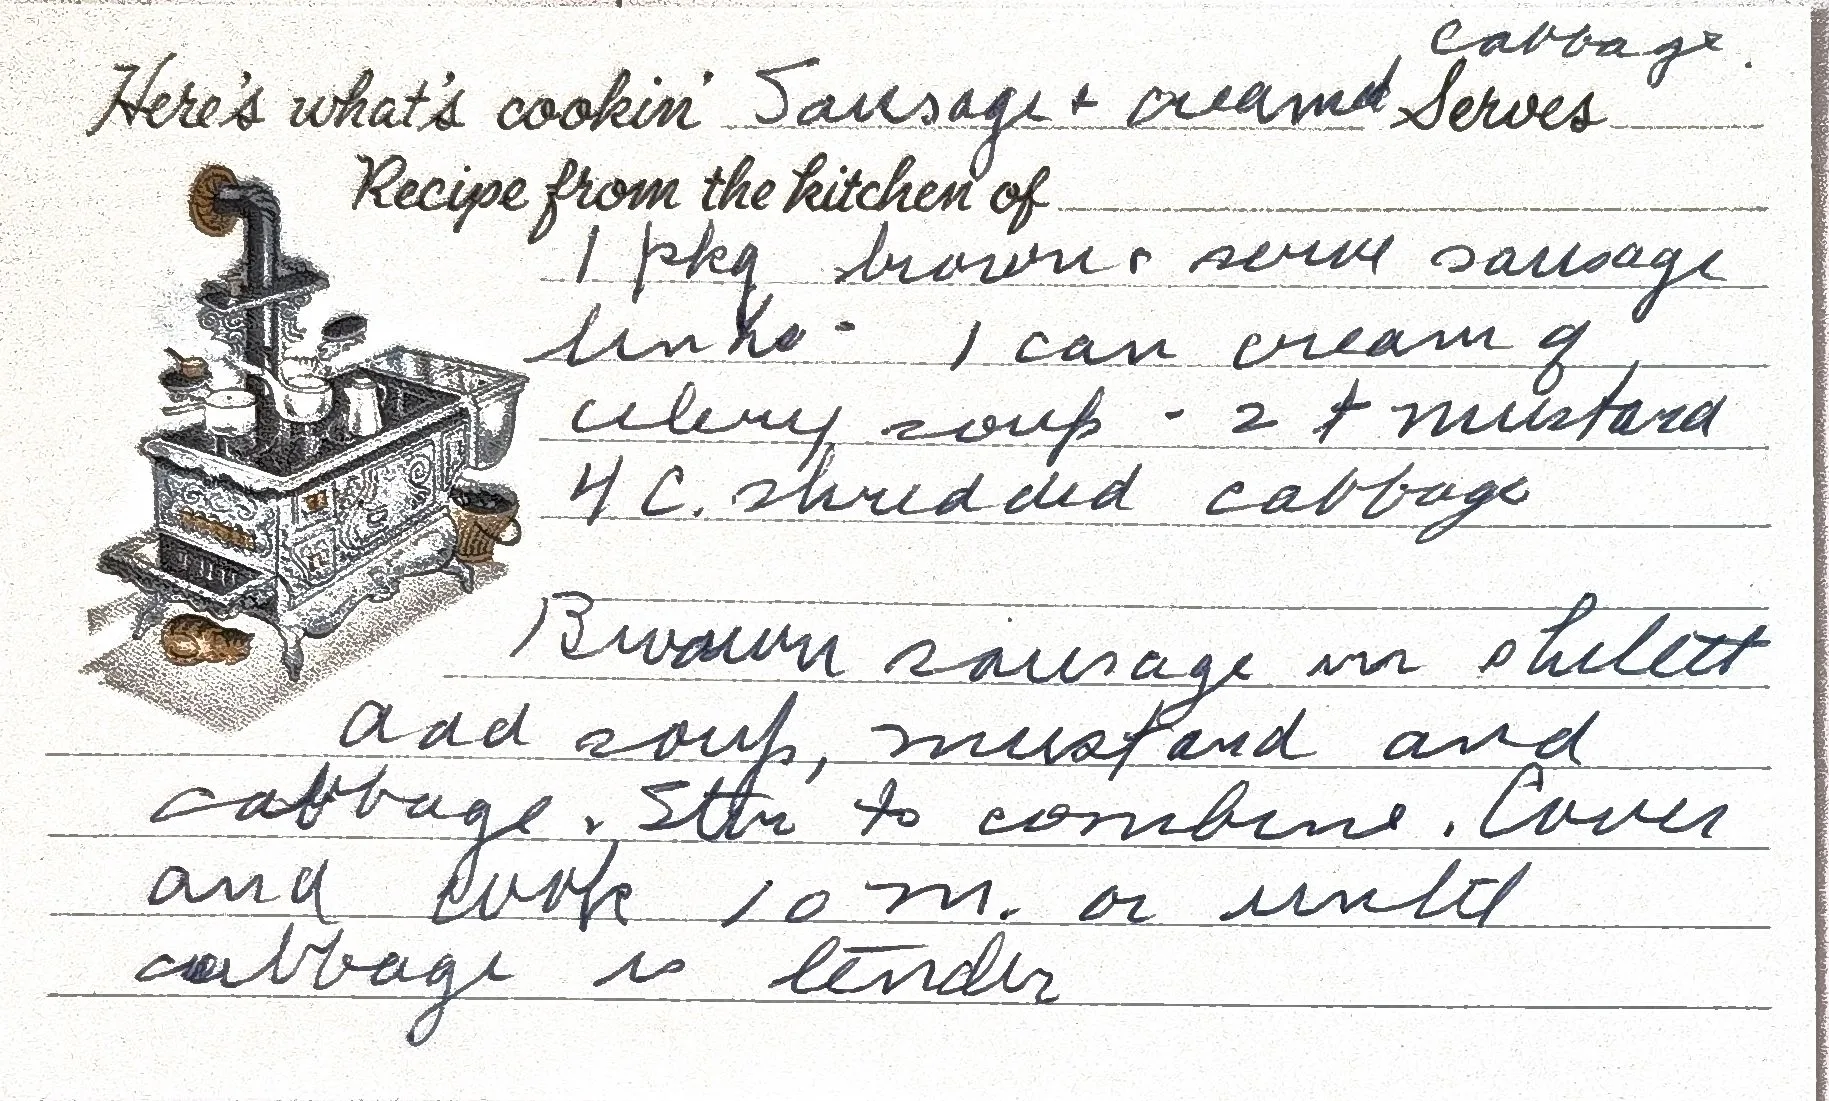 cabbage.
Here's what's cookin' Sausage + creamed Serves
Recipe from the kitchen of
1 pkg brown & serve sausage
links - 1 can cream of
celery soup - 2 t mustard
4 C. shredded cabbage
Brown sausage in skilett
add soup, mustard and
cabbage. Stir to combine. Cover
and cook 10 m. or until
cabbage is tender